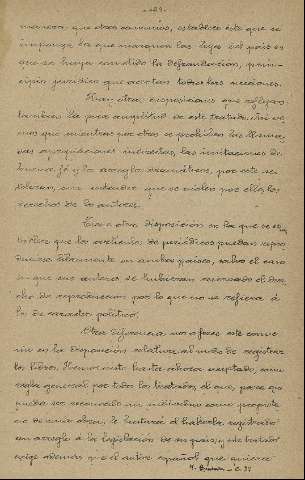 manera que otros convenios, establece éste que se
imponga la que marquen las leyes del país en
que se haya cometido la defraudación, prin-
cipio jurídico que acatan todas las naciones.
Hay otra disposición que refleja
también la poca amplitud de este tratado. Ve-
mos que mientras por otros se prohiben las llama-
das apropiaciones indirectas, las imitaciones de
buena fé y los arreglos dramáticos, por este se
toleran, sin entender que se violen por ello los
derechos de los autores.
Trae otra disposición en la que se es-
tablece que los artículos de periódicos puedan repro-
ducirse libremente en ambos países, salvo el caso
en que sus autores se hubieran reservado el dere-
cho de reproducción por lo que no se refiera á
los de carácter político.
Otra diferencia nos ofrece este conve-
nio en la disposición relativa al modo de registrar
los libros. Generalmente hasta ahora aceptado, como
regla general por todos los tratados, el que, para que
pueda ser reconocido un individuo como propieta-
rio de una obra, le bastará el haberla registrado
con arreglo á la legislación de su país, y este tratado
exige además que el autor español que quiera